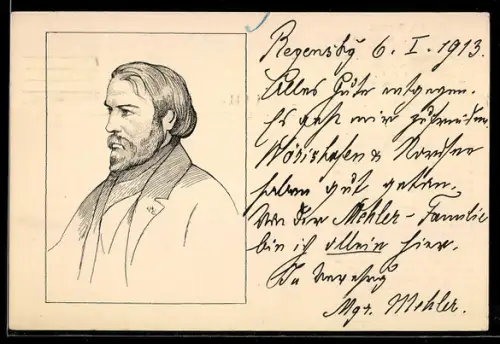 Regensbg 6. I. 1913.
Alles Gute entgegen.
Es geht mir zufrieden.
Wörishofen & Nordsee
haben gut getan.
Von der Mehler-Familie
bin ich allein hier.
In Verehrg
Mgr. Mehler.